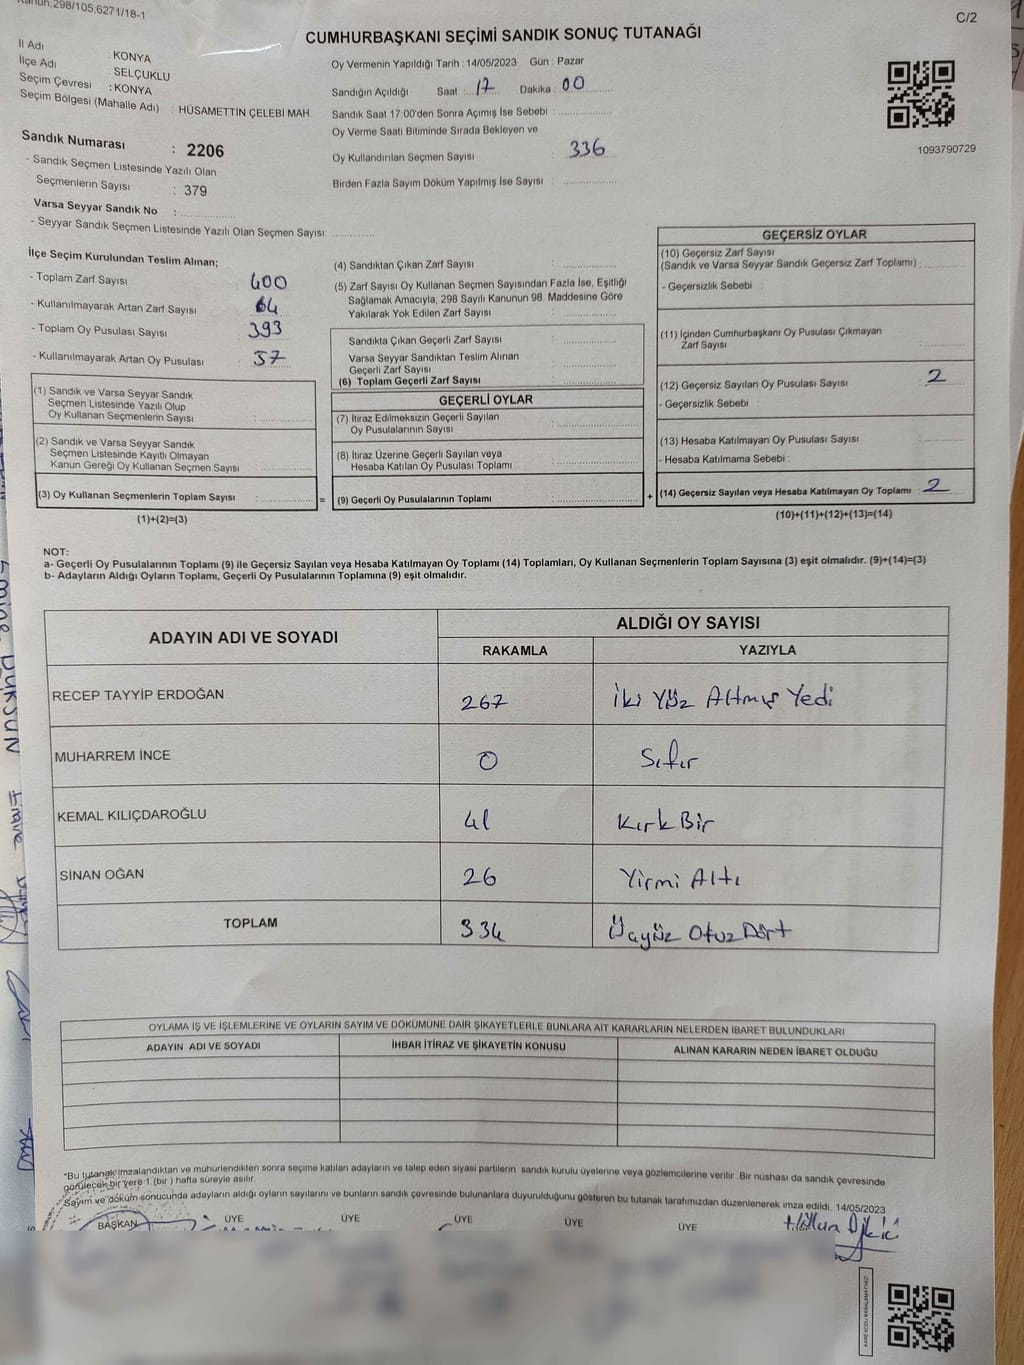 Kanun:298/105;6271/18-1
C/2
CUMHURBAŞKANI SEÇİMİ SANDIK SONUÇ TUTANAĞI
İl Adı : KONYA
İlçe Adı SELÇUKLU
Seçim Çevresi : KONYA
Seçim Bölgesi (Mahalle Adı) : HÜSAMETTİN ÇELEBİ MAH.
Oy Vermenin Yapıldığı Tarih : 14/05/2023 Gün : Pazar
Sandığın Açıldığı Saat : 17 Dakika : 00
Sandık Saat 17:00'den Sonra Açımış İse Sebebi :
Oy Verme Saati Bitiminde Sırada Bekleyen ve
Oy Kullandırılan Seçmen Sayısı : 336
Birden Fazla Sayım Döküm Yapılmış İse Sayısı :
1093790729
Sandık Numarası : 2206
- Sandık Seçmen Listesinde Yazılı Olan
Seçmenlerin Sayısı : 379
Varsa Seyyar Sandık No :
- Seyyar Sandık Seçmen Listesinde Yazılı Olan Seçmen Sayısı:
İlçe Seçim Kurulundan Teslim Alınan;
- Toplam Zarf Sayısı 400
- Kullanılmayarak Artan Zarf Sayısı 64
- Toplam Oy Pusulası Sayısı 393
- Kullanılmayarak Artan Oy Pusulası 57
(1) Sandık ve Varsa Seyyar Sandık
Seçmen Listesinde Yazılı Olup
Oy Kullanan Seçmenlerin Sayısı :
(2) Sandık ve Varsa Seyyar Sandık
Seçmen Listesinde Kayıtlı Olmayan
Kanun Gereği Oy Kullanan Seçmen Sayısı :
(3) Oy Kullanan Seçmenlerin Toplam Sayısı :
=
(1)+(2)=(3)
(4) Sandıktan Çıkan Zarf Sayısı :
(5) Zarf Sayısı Oy Kullanan Seçmen Sayısından Fazla İse, Eşitliği
Sağlamak Amacıyla, 298 Sayılı Kanunun 98. Maddesine Göre
Yakılarak Yok Edilen Zarf Sayısı :
Sandıkta Çıkan Geçerli Zarf Sayısı :
Varsa Seyyar Sandıktan Teslim Alınan
Geçerli Zarf Sayısı :
(6) Toplam Geçerli Zarf Sayısı :
GEÇERLİ OYLAR
(7) İtiraz Edilmeksizin Geçerli Sayılan
Oy Pusulalarının Sayısı :
(8) İtiraz Üzerine Geçerli Sayılan veya
Hesaba Katılan Oy Pusulası Toplamı :
(9) Geçerli Oy Pusulalarının Toplamı :
+
GEÇERSİZ OYLAR
(10) Geçersiz Zarf Sayısı
(Sandık ve Varsa Seyyar Sandık Geçersiz Zarf Toplamı) :
- Geçersizlik Sebebi :
(11) İçinden Cumhurbaşkanı Oy Pusulası Çıkmayan
Zarf Sayısı :
(12) Geçersiz Sayılan Oy Pusulası Sayısı : 2
- Geçersizlik Sebebi :
(13) Hesaba Katılmayan Oy Pusulası Sayısı :
- Hesaba Katılmama Sebebi :
(14) Geçersiz Sayılan veya Hesaba Katılmayan Oy Toplamı : 2
(10)+(11)+(12)+(13)=(14)
NOT:
a- Geçerli Oy Pusulalarının Toplamı (9) ile Geçersiz Sayılan veya Hesaba Katılmayan Oy Toplamı (14) Toplamları, Oy Kullanan Seçmenlerin Toplam Sayısına (3) eşit olmalıdır. (9)+(14)=(3)
b- Adayların Aldığı Oyların Toplamı, Geçerli Oy Pusulalarının Toplamına (9) eşit olmalıdır.
ADAYIN ADI VE SOYADI ALDIĞI OY SAYISI
RAKAMLA YAZIYLA
RECEP TAYYİP ERDOĞAN 267 İki Yüz Altmış Yedi
MUHARREM İNCE 0 Sıfır
KEMAL KILIÇDAROĞLU 41 Kırk Bir
SİNAN OĞAN 26 Yirmi Altı
TOPLAM 334 Üçyüz Otuz Dört
OYLAMA İŞ VE İŞLEMLERİNE VE OYLARIN SAYIM VE DÖKÜMÜNE DAİR ŞİKAYETLERLE BUNLARA AİT KARARLARIN NELERDEN İBARET BULUNDUKLARI
ADAYIN ADI VE SOYADI İHBAR İTİRAZ VE ŞİKAYETİN KONUSU ALINAN KARARIN NEDEN İBARET OLDUĞU
*Bu tutanak imzalandıktan ve mühürlendikten sonra seçime katılan adayların ve talep eden siyasi partilerin sandık kurulu üyelerine veya gözlemcilerine verilir. Bir nüshası da sandık çevresinde
görülecek bir yere 1 (bir ) hafta süreyle asılır.
Sayım ve döküm sonucunda adayların aldığı oyların sayılarını ve bunların sandık çevresinde bulunanlara duyurulduğunu gösteren bu tutanak tarafımızdan düzenlenerek imza edildi. 14/05/2023
BAŞKAN ÜYE ÜYE ÜYE ÜYE ÜYE